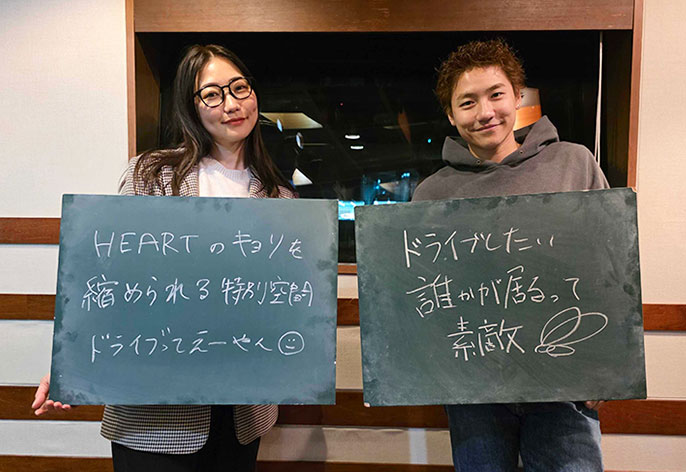 HEARTのキョリを
縮められる特別空間
ドライブってえーやん
ドライブしたい
誰かが居るって
素敵